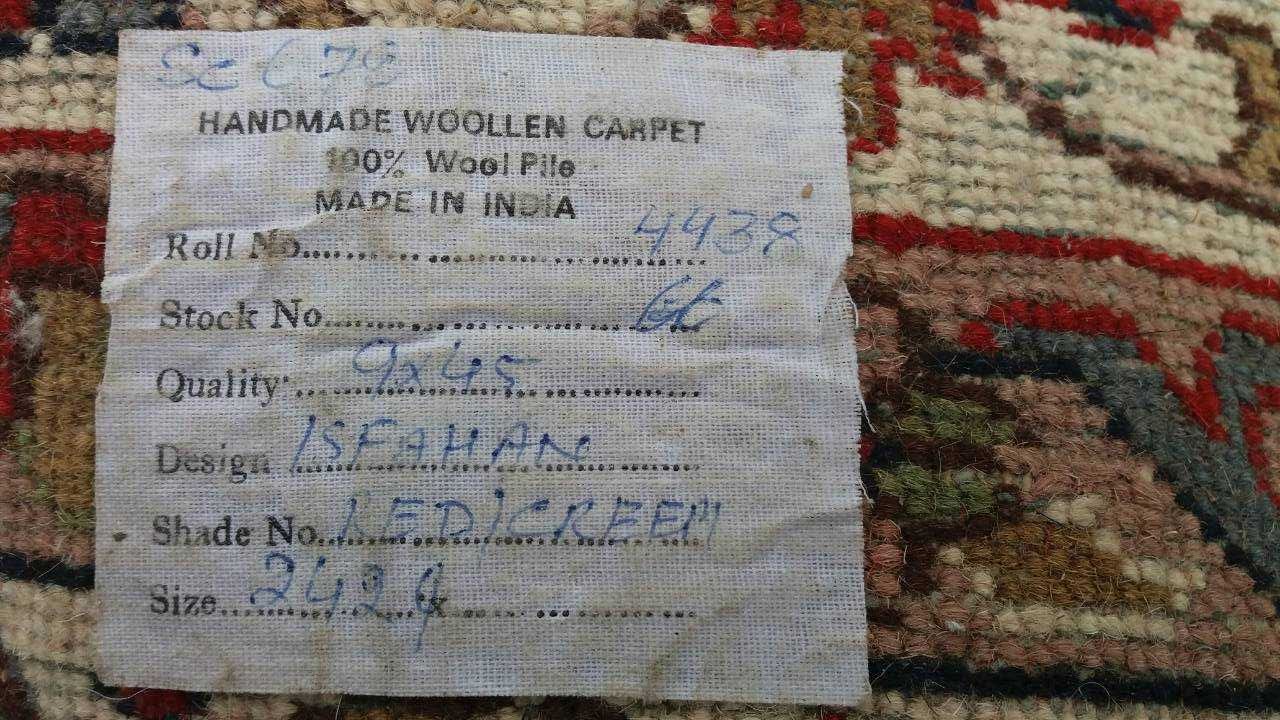 Sc 678
HANDMADE WOOLLEN CARPET
100% Wool Pile
MADE IN INDIA
Roll No. 4438
Stock No.
Quality 9x45
Design ISFAHAN
Shade No. REDICREEM
Size